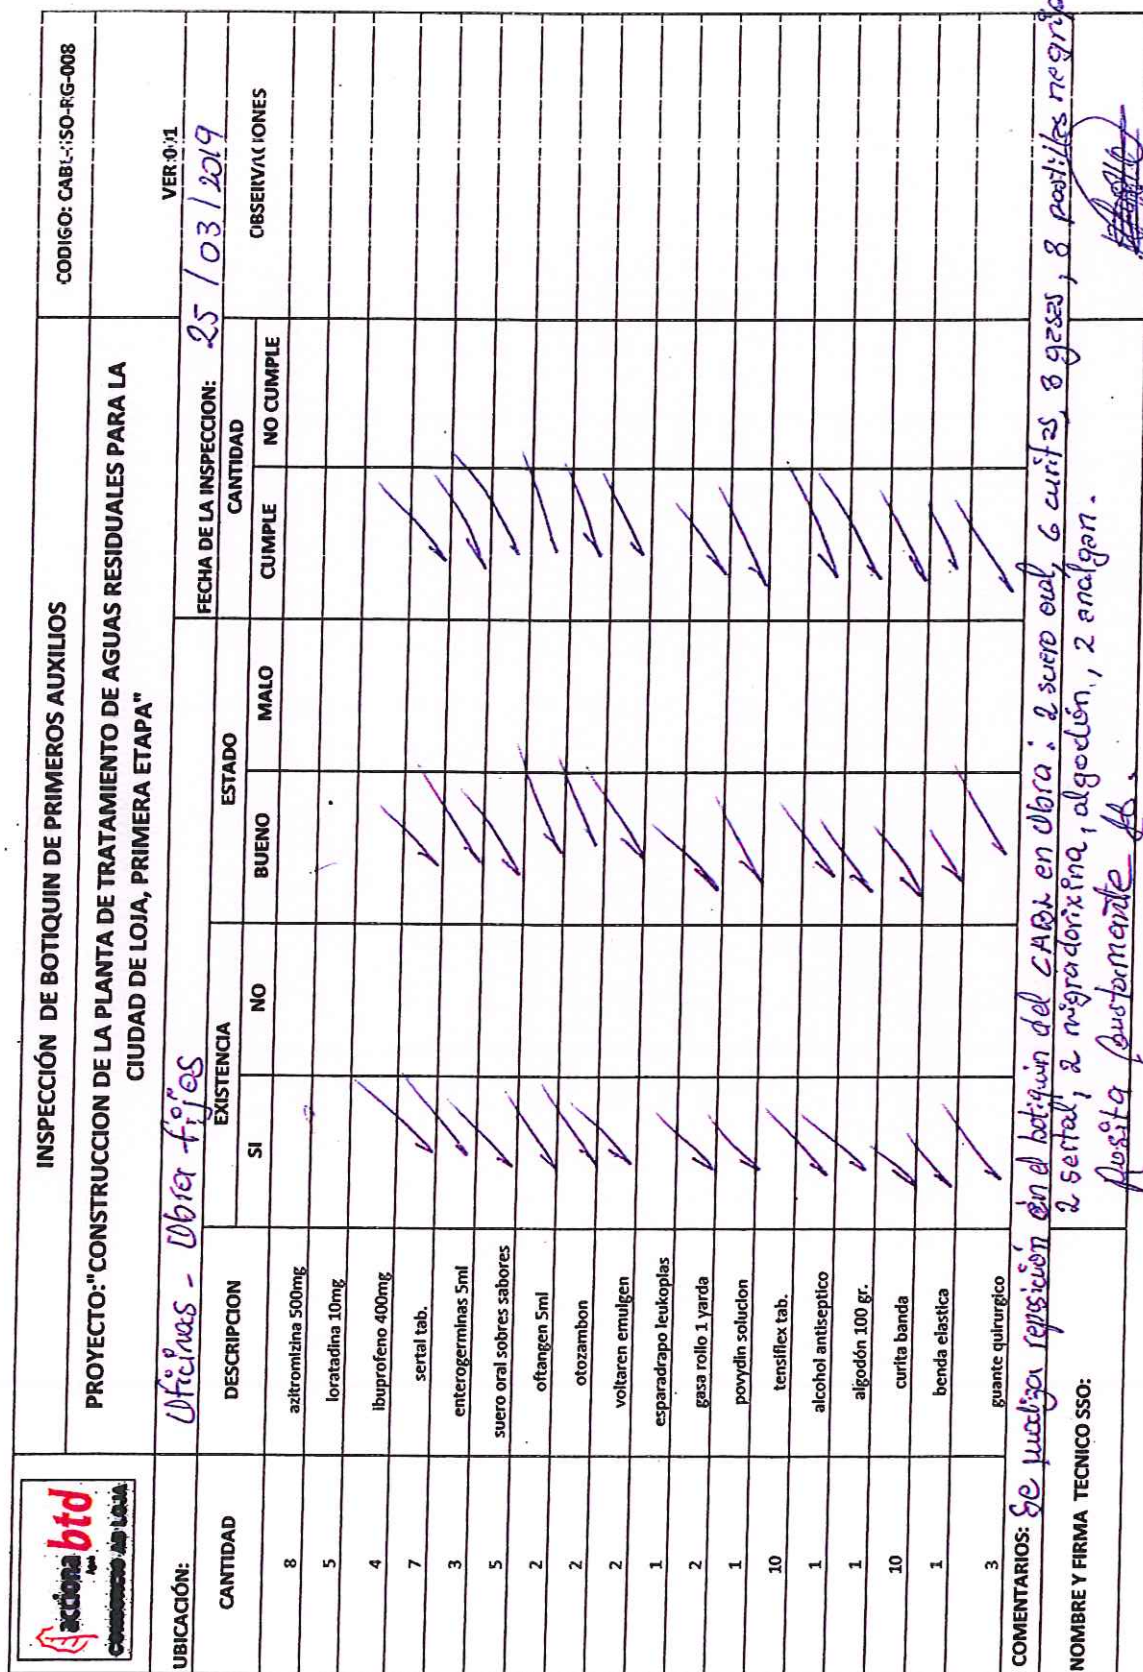 acciona btd
Agua
CONSORCIO AB LOJA
INSPECCIÓN DE BOTIQUIN DE PRIMEROS AUXILIOS
CODIGO: CABL-SSO-RG-008
PROYECTO:"CONSTRUCCION DE LA PLANTA DE TRATAMIENTO DE AGUAS RESIDUALES PARA LA
CIUDAD DE LOJA, PRIMERA ETAPA"
VER:001
UBICACIÓN: Oficinas - Obra fijos
FECHA DE LA INSPECCION: 25 / 03 / 2019
CANTIDAD DESCRIPCION EXISTENCIA ESTADO CANTIDAD OBSERVACIONES
SI NO BUENO MALO CUMPLE NO CUMPLE
8 azitromizina 500mg
5 loratadina 10mg
4 ibuprofeno 400mg
7 sertal tab.
3 enterogerminas 5ml
5 suero oral sobres sabores
2 oftangen 5ml
2 otozambon
2 voltaren emulgen
1 esparadrapo leukoplas
2 gasa rollo 1 yarda
1 povydin solucion
10 tensiflex tab.
1 alcohol antiseptico
1 algodón 100 gr.
10 curita banda
1 benda elastica
3 guante quirurgico
COMENTARIOS: Se realiza reposición en el botiquin del CABL en Obra: 2 suero oral, 6 curitas, 3 gasas, 8 pastillas
2 sertal, 2 migradorixina, algodón, 2 analgan.
NOMBRE Y FIRMA TECNICO SSO: Rosita Bustamante